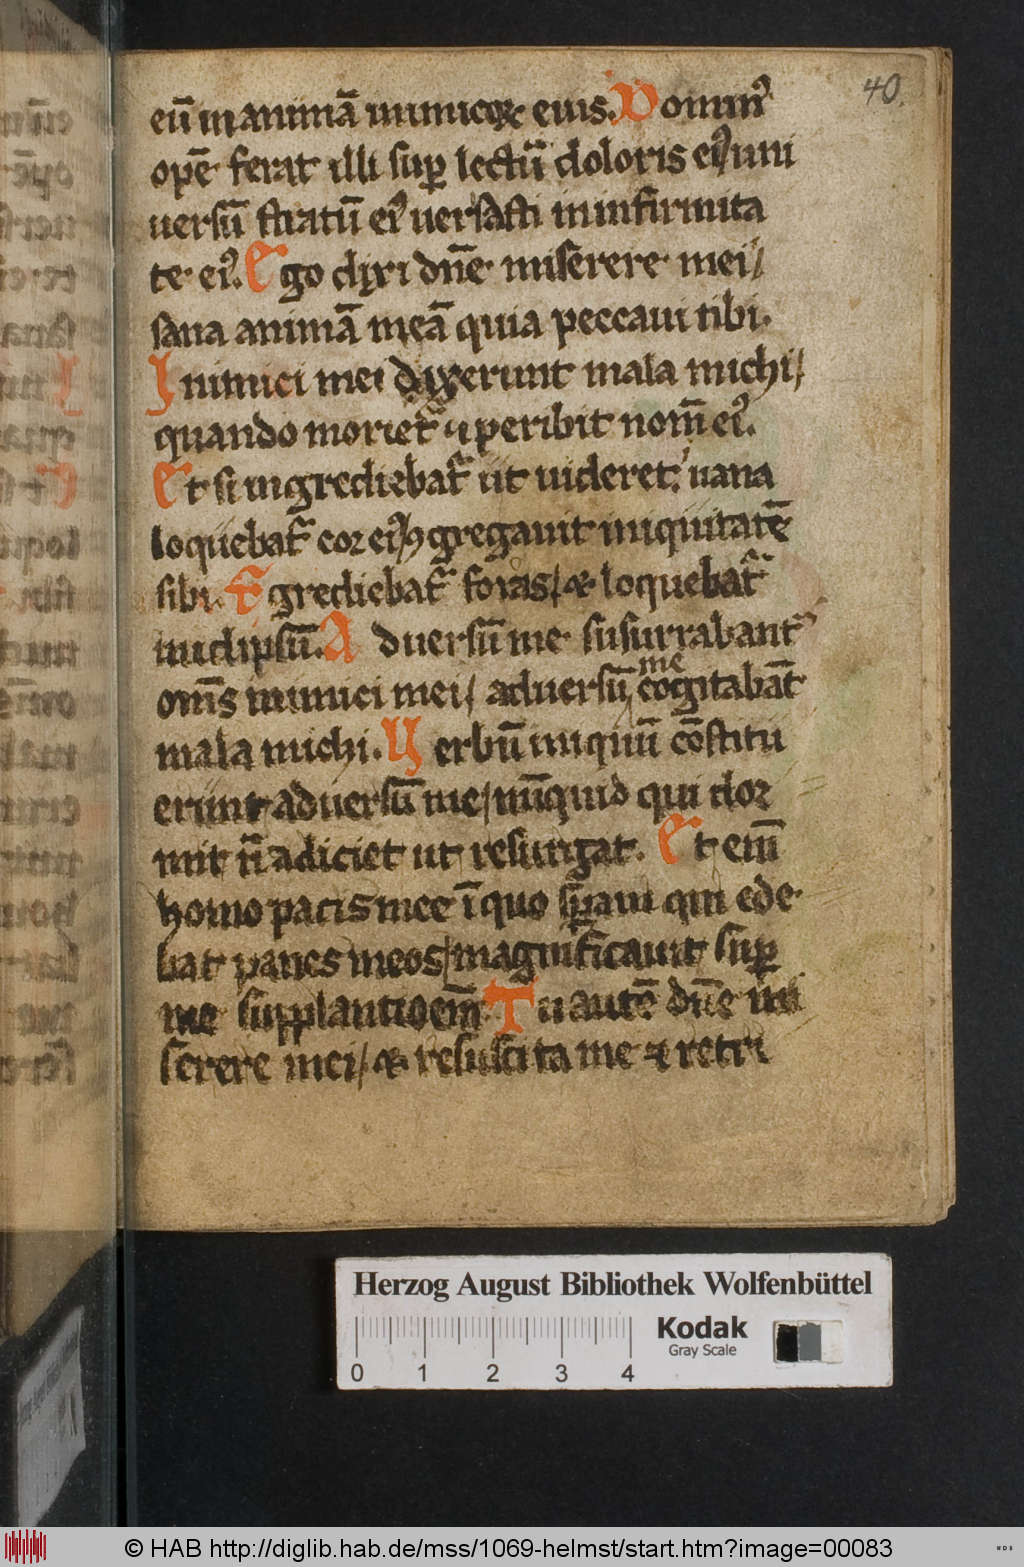 40.
eū in animā inimicoꝝ eius. Domin᷒
opē ferat illi suꝑ lectū doloris ei᷒ uni
uersū stratū ei᷒ uersasti in infirmita
te ei᷒. Ego dixi dn̄e miserere mei/
sana animā meā quia peccaui tibi.
Inimici mei dixerunt mala michi/
quando moriet᷑ ⁊ peribit nom̄ ei᷒.
Et si ingrediebat᷑ ut uideret/ uana
loquebat᷑ cor ei᷒/ ꝯgregauit iniquitatē
sibi. Egrediebat᷑ foras/ & loquebat᷑
in idipsū. Aduersū me susurrabant
om̄s inimici mei/ aduersū me cogitabāt
mala michi. Uerbū iniquū cōstitu
erunt aduersū me/ nūquid qui dor
mit n̄ adiciet ut resurgat. Et em̄
homo pacis mee ī quo sꝑaui qui ede
bat panes meos/ magnificauit suꝑ
me supplantioem̄ Tu autē dn̄e mi
serere mei/ & resuscita me ⁊ retri
Herzog August Bibliothek Wolfenbüttel
Kodak
Gray Scale
0 1 2 3 4
© HAB http://diglib.hab.de/mss/1069-helmst/start.htm?image=00083